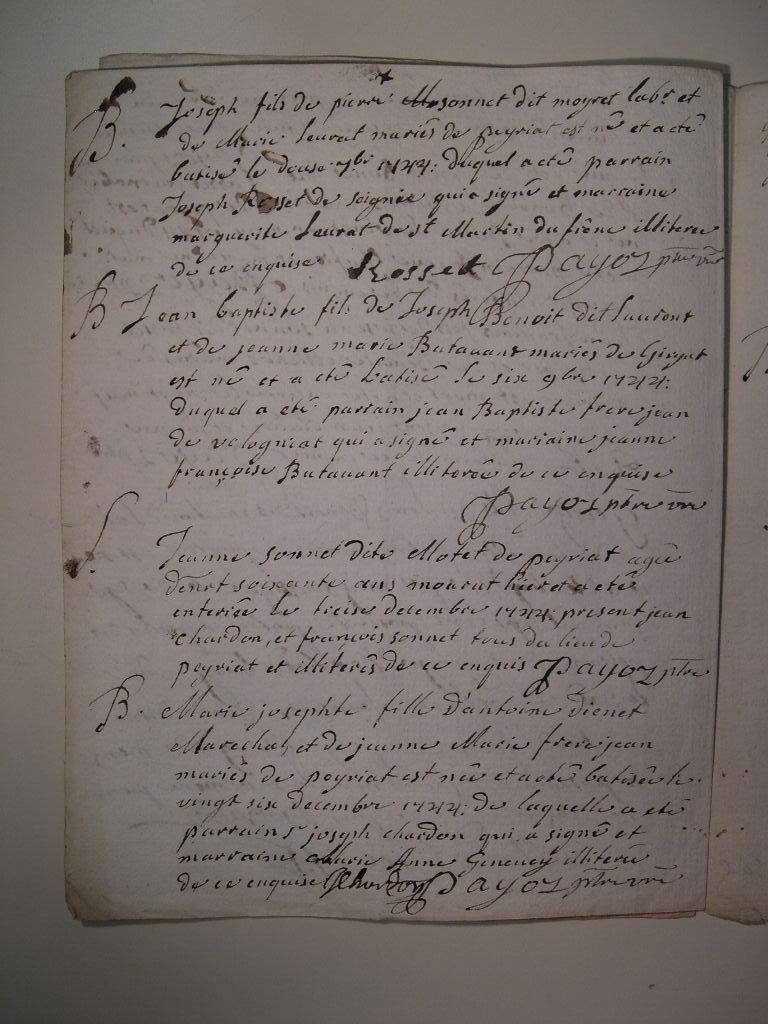 B. Joseph fils de pierre sonnet dit moyret labr et
de Marie Leurat mariés de peyriat est né et a eté
batisé le douse 9bre 1744: duquel a eté parrain
Joseph Rosset de soignée qui a signé et marraine
marguerite Leurat de st Martin du frêne illiterée
de ce enquise Rosset Payoz ptre vre
B Jean baptiste fils de Joseph Benoit dit Laurent
et de jeanne marie Batavant mariés de
est né et a eté batisé le six 9bre 1744:
duquel a eté parrain jean Baptiste frerejean
de volognat qui a signé et marraine jeanne
françoise Batavant illiterée de ce enquise
Payoz ptre vre
S. Jeanne sonnet dite Motet de peyriat agée
soixante ans mourut hier et a eté
enterrée le treise decembre 1744: present jean
chardon, et françois sonnet tous du lieu de
peyriat et illiterés de ce enquis Payoz ptre
B. Marie josephte fille d'antoine Dienet
Marechal, et de jeanne Marie frerejean
mariés de peyriat est née et a eté batisée le
vingt six decembre 1744: de laquelle a eté
parrain sr joseph chardon qui a signé et
marraine Marie Anne Genevey illiterée
de ce enquise Chardon Payoz ptre vre